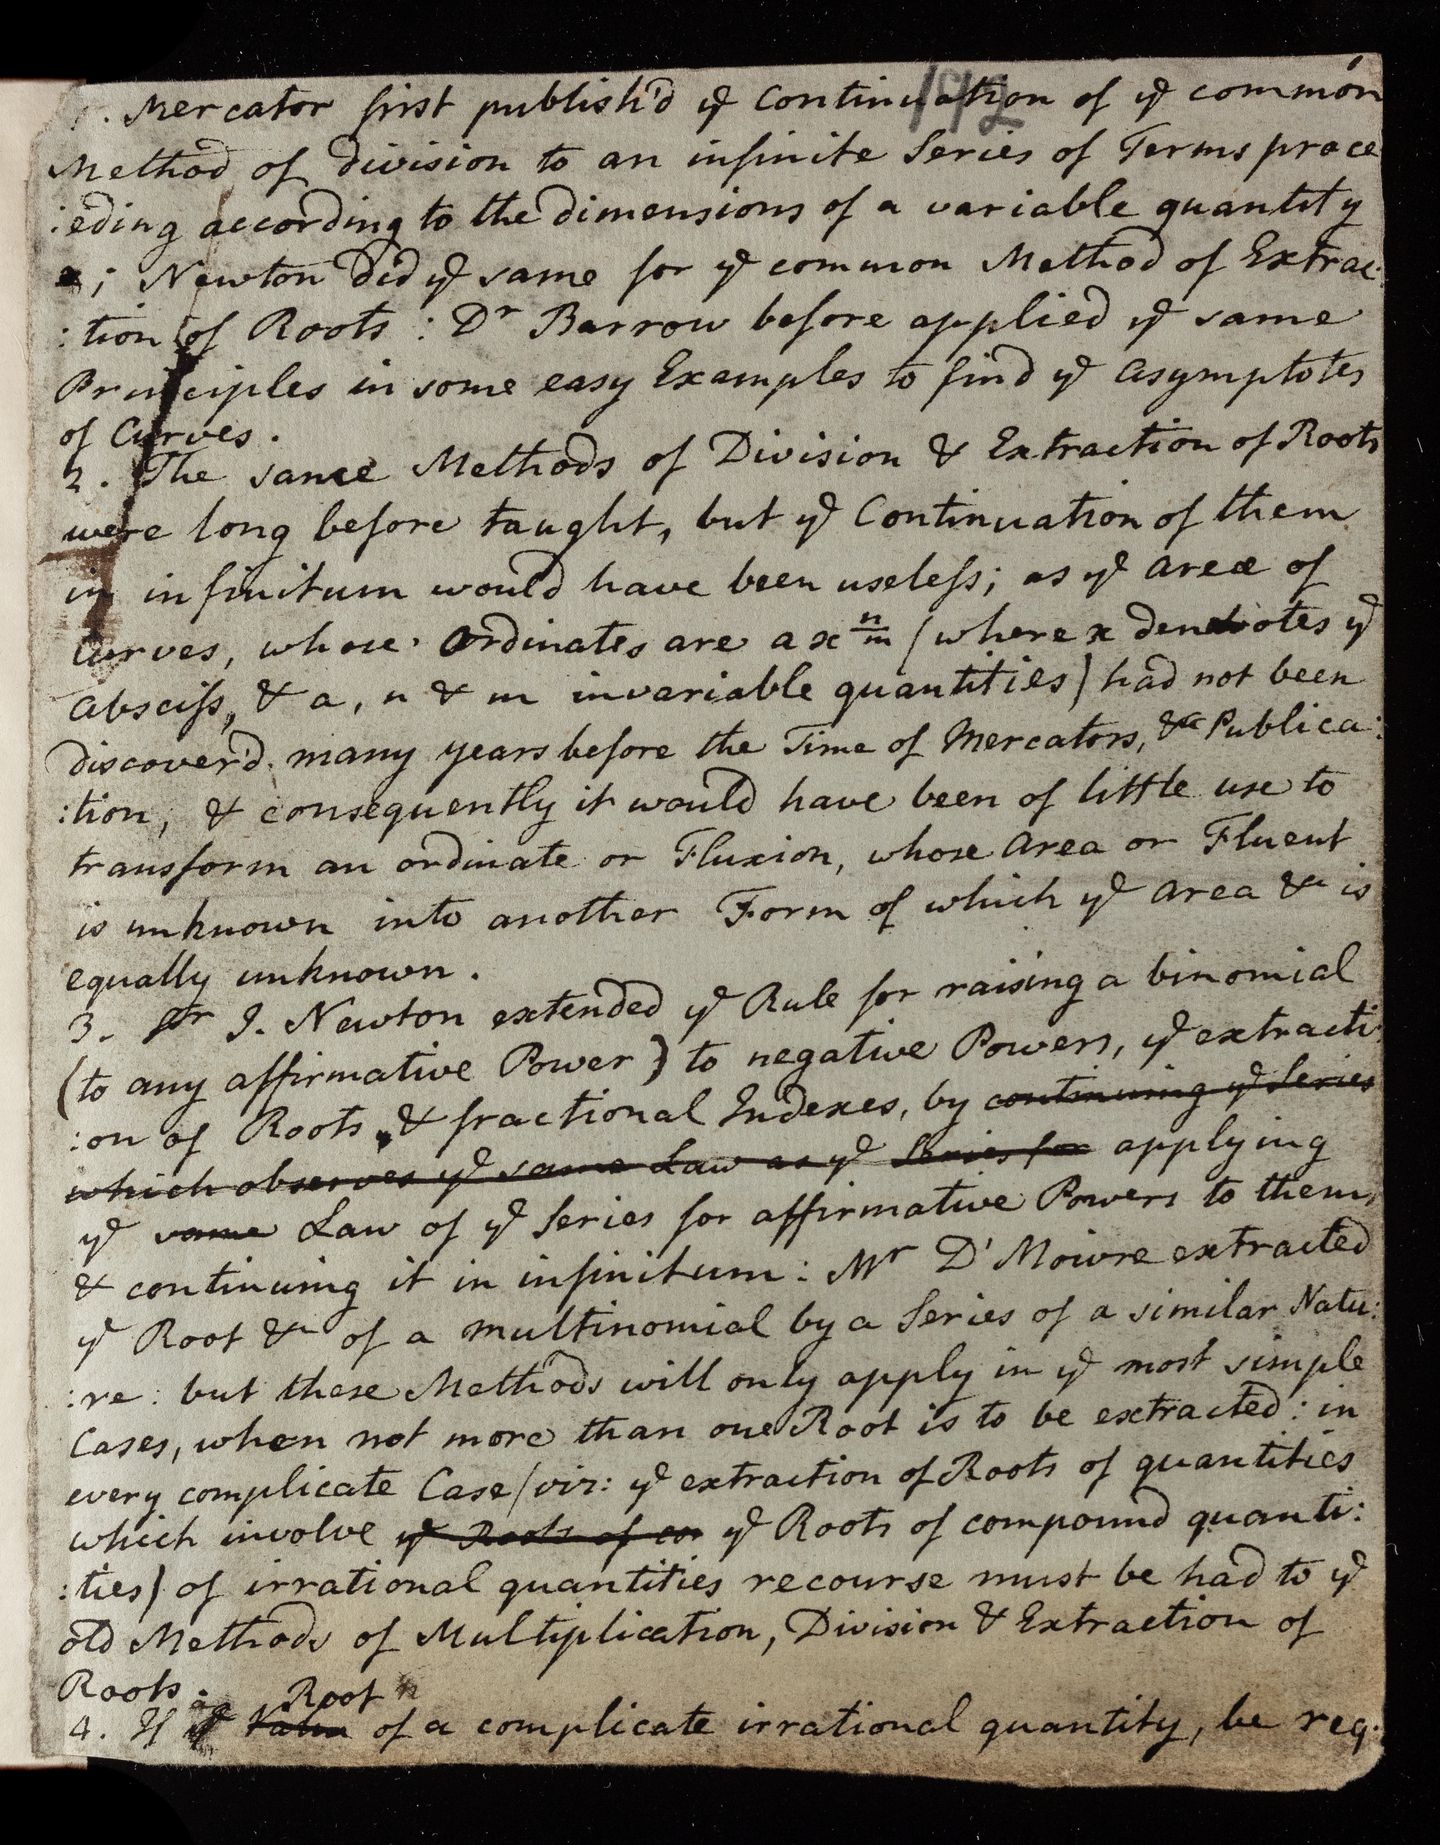 1. Mercator first publish'd yͤ Continuation of yͤ common
Method of division to an infinite Series of Terms proce
:eding according to the dimensions of a variable quantity
; Newton did yͤ same for yͤ common Method of Extrac:
:tion of Roots : Dʳ Barrow before applied yͤ same
Principles in some easy Examples to find yͤ Asymptotes
of Curves.
2. The same Methods of Division & Extraction of Roots
were long before taught, but yͤ Continuation of them
in infinitum would have been useless; as yͤ areæ of
Curves, whose Ordinates are a x^{n/m} (where x denotes yͤ
Absciss, & a, n & m invariable quantities) had not been
discover'd many years before the Time of Mercators, &c Publica:
:tion, & consequently it would have been of little use to
transform an ordinate or Fluxion, whose Area or Fluent
is unknown into another Form of which yͤ Area &c is
equally unknown.
3. Sʳ I. Newton extended yͤ Rule for raising a binomial
(to any affirmative Power) to negative Powers, yͤ extracti:
:on of Roots, & fractional Indexes, by continuing yͤ Series
which observes yͤ same Law as yͤ Series for applying
yͤ same Law of yͤ Series for affirmative Powers to them,
& continuing it in infinitum: Mʳ D'Moivre extracted
yͤ Root &c of a multinomial by a Series of a similar Natu:
:re: but these Methods will only apply in yͤ most simple
Cases, when not more than one Root is to be extracted: in
every complicate Case (viz: yͤ extraction of Roots of quantities
which involve yͤ Roots of co yͤ Roots of compound quanti:
:ties) of irrational quantities recourse must be had to yͤ
old Methods of Multiplication, Division & Extraction of
Roots.
Root
4. If yͤ Value of a complicate irrational quantity, be req: